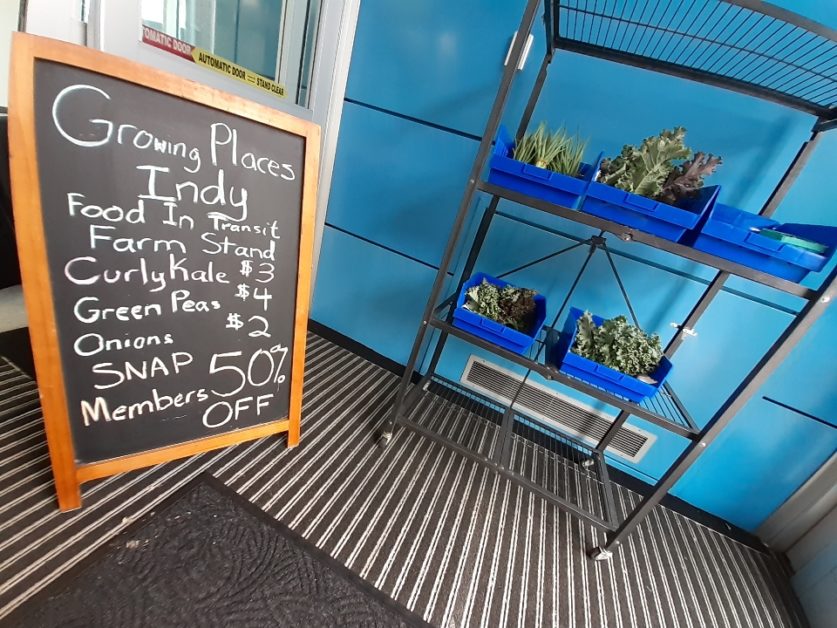 TOMATIC DOOR
AUTOMATIC DOOR
STAND CLEAR
Growing Places
Indy
Food In Transit
Farm Stand
Curly Kale $3
Green Peas $4
Onions $2
SNAP 50%
Members OFF